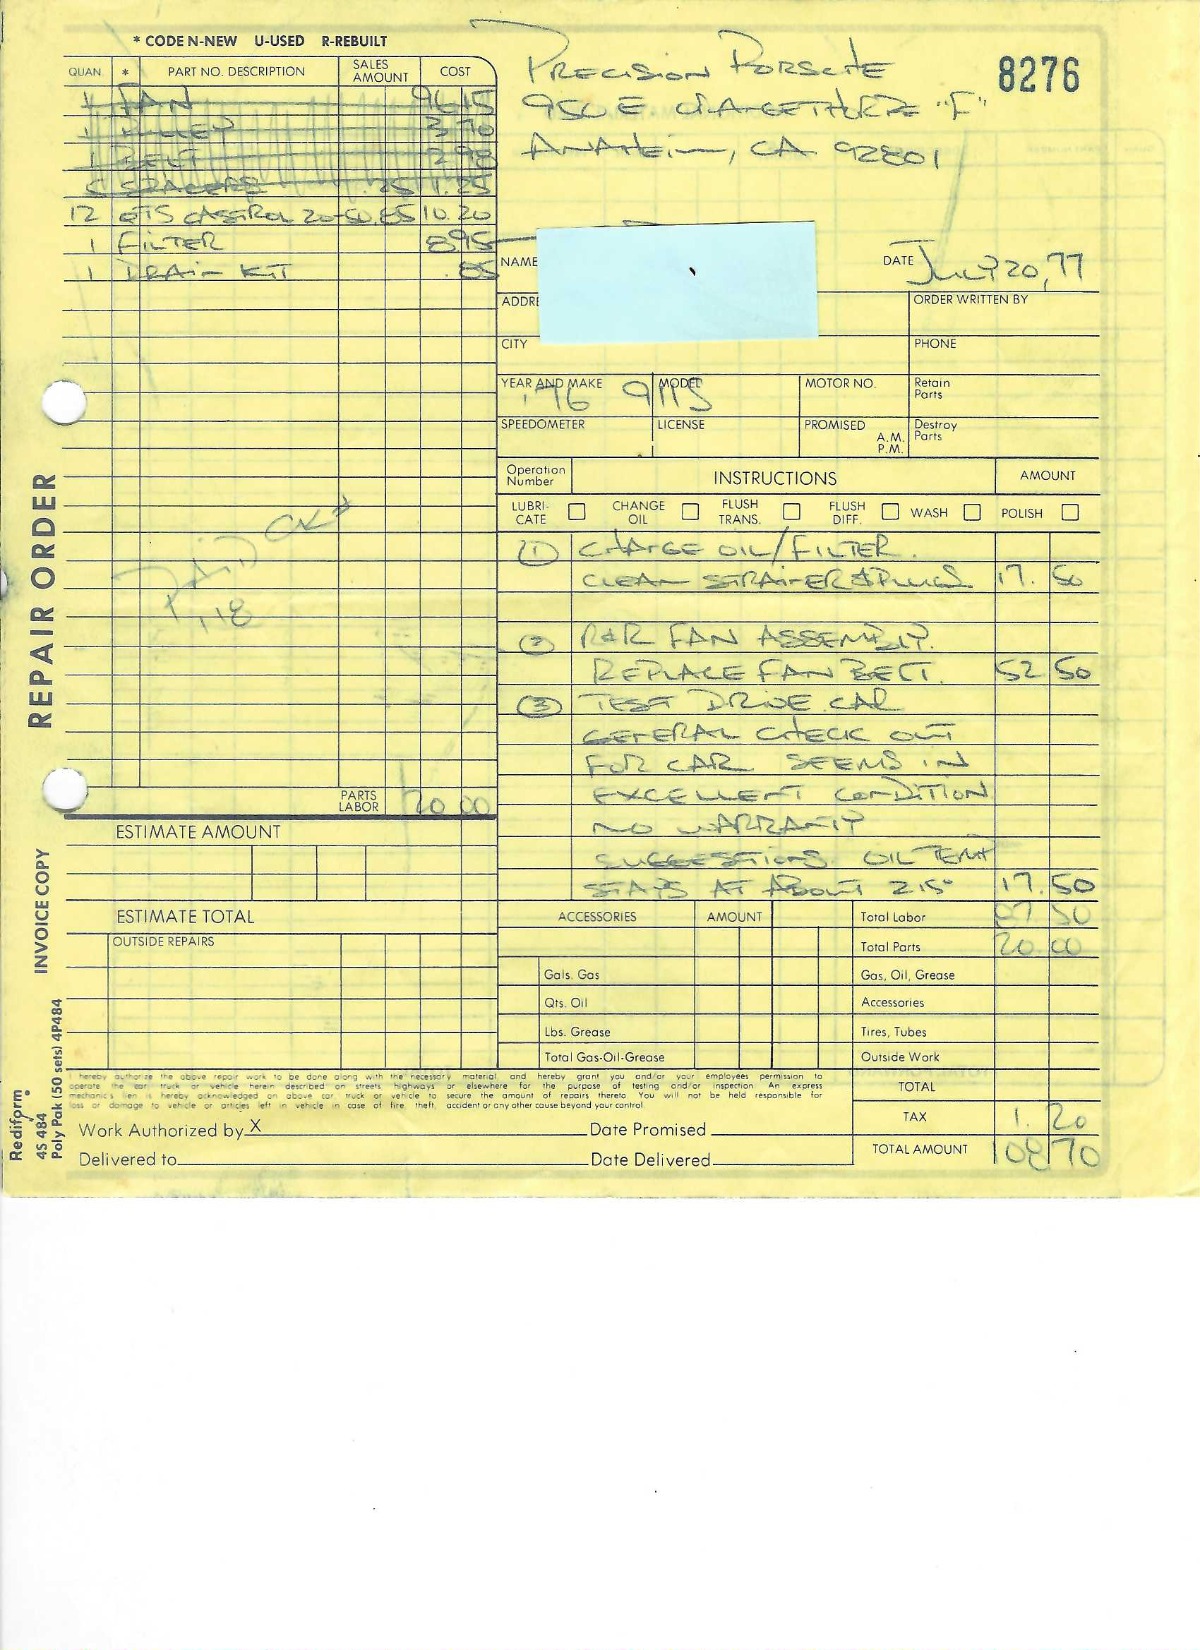 * CODE N-NEW U-USED R-REBUILT
QUAN. * PART NO. DESCRIPTION SALES AMOUNT COST
1 FAN 96 15
1 PULLEY 3 70
1 BELT 2 98
5 SPACERS .25 1.25
12 QTS CASTROL 20-50 .85 10.20
1 FILTER 8 95
1 DRAIN KIT .85
PRECISION PORSCHE
950 E ORANGETHORPE "F"
ANAHEIM, CA 92801
8276
NAME
DATE July 20, 77
ADDRE
ORDER WRITTEN BY
CITY
PHONE
YEAR AND MAKE '76 911S MODEL
MOTOR NO.
Retain Parts
SPEEDOMETER
LICENSE
PROMISED A.M. P.M.
Destroy Parts
Operation Number
INSTRUCTIONS
AMOUNT
LUBRI-CATE
CHANGE OIL
FLUSH TRANS.
FLUSH DIFF.
WASH
POLISH
① CHANGE OIL/FILTER.
CLEAN STRAINER & PLUGS 17. 50
② R&R FAN ASSEMBLY.
REPLACE FAN BELT. 52 50
③ TEST DRIVE CAR
GENERAL CHECK OUT
FOR CAR SEEMS IN
EXCELLENT CONDITION
NO WARRANTY
SUGGESTIONS. OIL TEMP
STAYS AT ABOUT 215° 17.50
PAID CK#
1118
PARTS
LABOR 20 00
ESTIMATE AMOUNT
ESTIMATE TOTAL
OUTSIDE REPAIRS
ACCESSORIES
AMOUNT
Gals. Gas
Qts. Oil
Lbs. Grease
Total Gas-Oil-Grease
Total Labor 87 50
Total Parts 20 00
Gas, Oil, Grease
Accessories
Tires, Tubes
Outside Work
TOTAL
TAX 1. 20
TOTAL AMOUNT 108 70
I hereby authorize the above repair work to be done along with the necessary material, and hereby grant you and/or your employees permission to
operate the car, truck or vehicle herein described on streets, highways or elsewhere for the purpose of testing and/or inspection. An express
mechanic's lien is hereby acknowledged on above car, truck or vehicle to secure the amount of repairs thereto. You will not be held responsible for
loss or damage to vehicle or articles left in vehicle in case of fire, theft, accident or any other cause beyond your control.
Work Authorized by X
Date Promised
Delivered to
Date Delivered
REPAIR ORDER
INVOICE COPY
Rediform
4S 484
Poly Pak (50 sets) 4P484